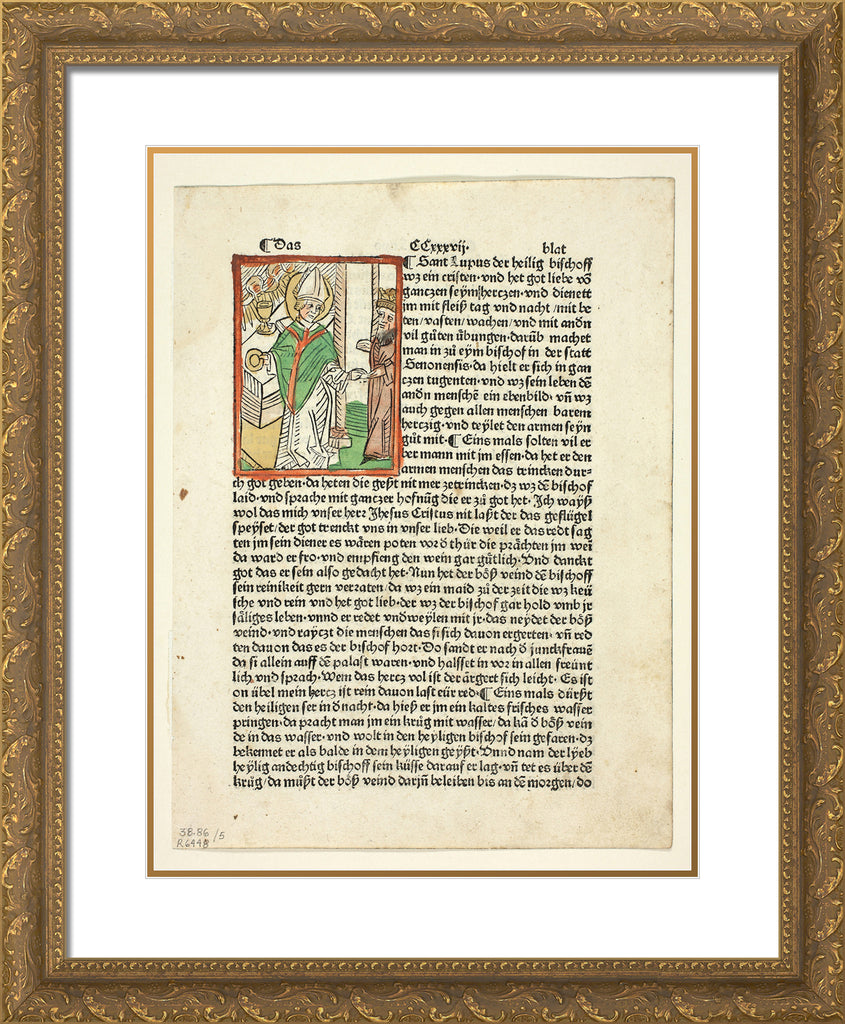 ¶ Das CCxxxvij. blat
¶ Sant Lupus der heilig bischoff
wz ein cristen · vnd het got liebe võ
ganczen seym herczen · vnd dienett
jm mit fleiß tag vnd nacht / mit be
ten / vasten / wachen / vnd mit andñ
vil gůten übungen · darũb machet
man in zů eym bischof in der statt
Senonensis · da hielt er sich in gan
czen tugenten · vnd wz sein leben dẽ
andñ menschẽ ein ebenbild · vñ wz
auch gegen allen menschen barem
herczig · vnd teylet den armen seyn
gůt mit · ¶ Eins mals solten vil er
ber mann mit jm essen · da het er den
armen menschen das trincken dur-
ch got geben · da heten die geßt nit mer ze trincken · dz wz dẽ bischof
laid · vnd sprache mit ganczer hofnũg die er zů got het · Ich wayß
wol das mich vnser herr Jhesus Cristus nit laßt der das geflügel
speyset / der got trenckt vns in vnser lieb · Die weil er das redt sag
ten jm sein diener es wären poten vor d thür die prächten jm wein
da ward er fro · vnd empfieng den wein gar gůtlich · Vnd danckt
got das er sein also gedacht het · Nun het der böß veind dẽ bischoff
sein reinikeit gern verraten / da wz ein maid zů der zeit die wz keü
sche vnd rein vnd het got lieb · der wz der bischof gar hold vmb jr
säliges leben · vnnd er redet vndweylen mit jr · das neydet der böß
veind · vnd rayczt die menschen das si sich dauon ergerten · vñ red
ten dauon das es der bischof hort · Do sandt er nach d junckfrauẽ
da si allein auff dẽ palast waren · vnd halsset in vor in allen freünt
lich vnd sprach · Wem das hercz vol ist der ärgert sich leicht · Es ist
on übel mein hercz ist rein dauon last eür red · ¶ Eins mals dürst
den heiligen ser in d nacht · da hieß er jm ein kaltes frisches wasser
pringen · da pracht man jm ein krůg mit wasser / da kã d böß vein
de in das wasser · vnd wolt in den heyligen bischof sein gefaren · dz
bekennet er als balde in dem heyligen geyst · Vnnd nam der lyeb
heylig andechtig bischoff sein küsse darauf er lag · vñ tet es über dẽ
krůg / da můst der böß veind darjñ beleiben bis an dẽ morgen / do
38-86/5
R6448